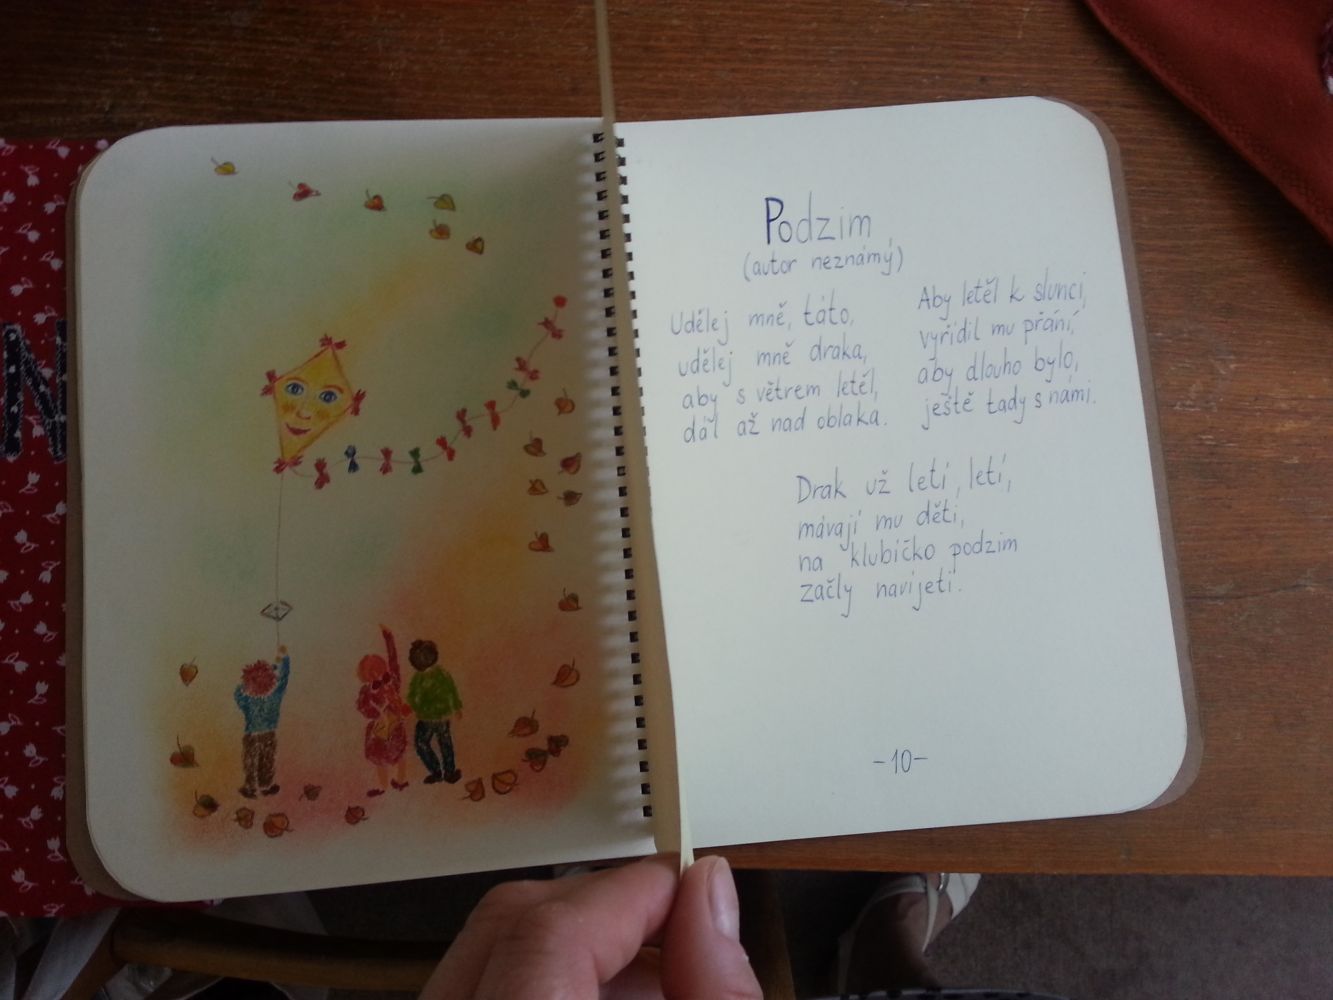 Podzim
(autor neznámý)
Udělej mně, táto,
udělej mně draka,
aby s větrem letěl,
dál až nad oblaka.
Aby letěl k slunci,
vyřídil mu přání,
aby dlouho bylo,
ještě tady s námi.
Drak už letí, letí,
mávají mu děti,
na klubíčko podzim
začly navíjeti.
-10-
N